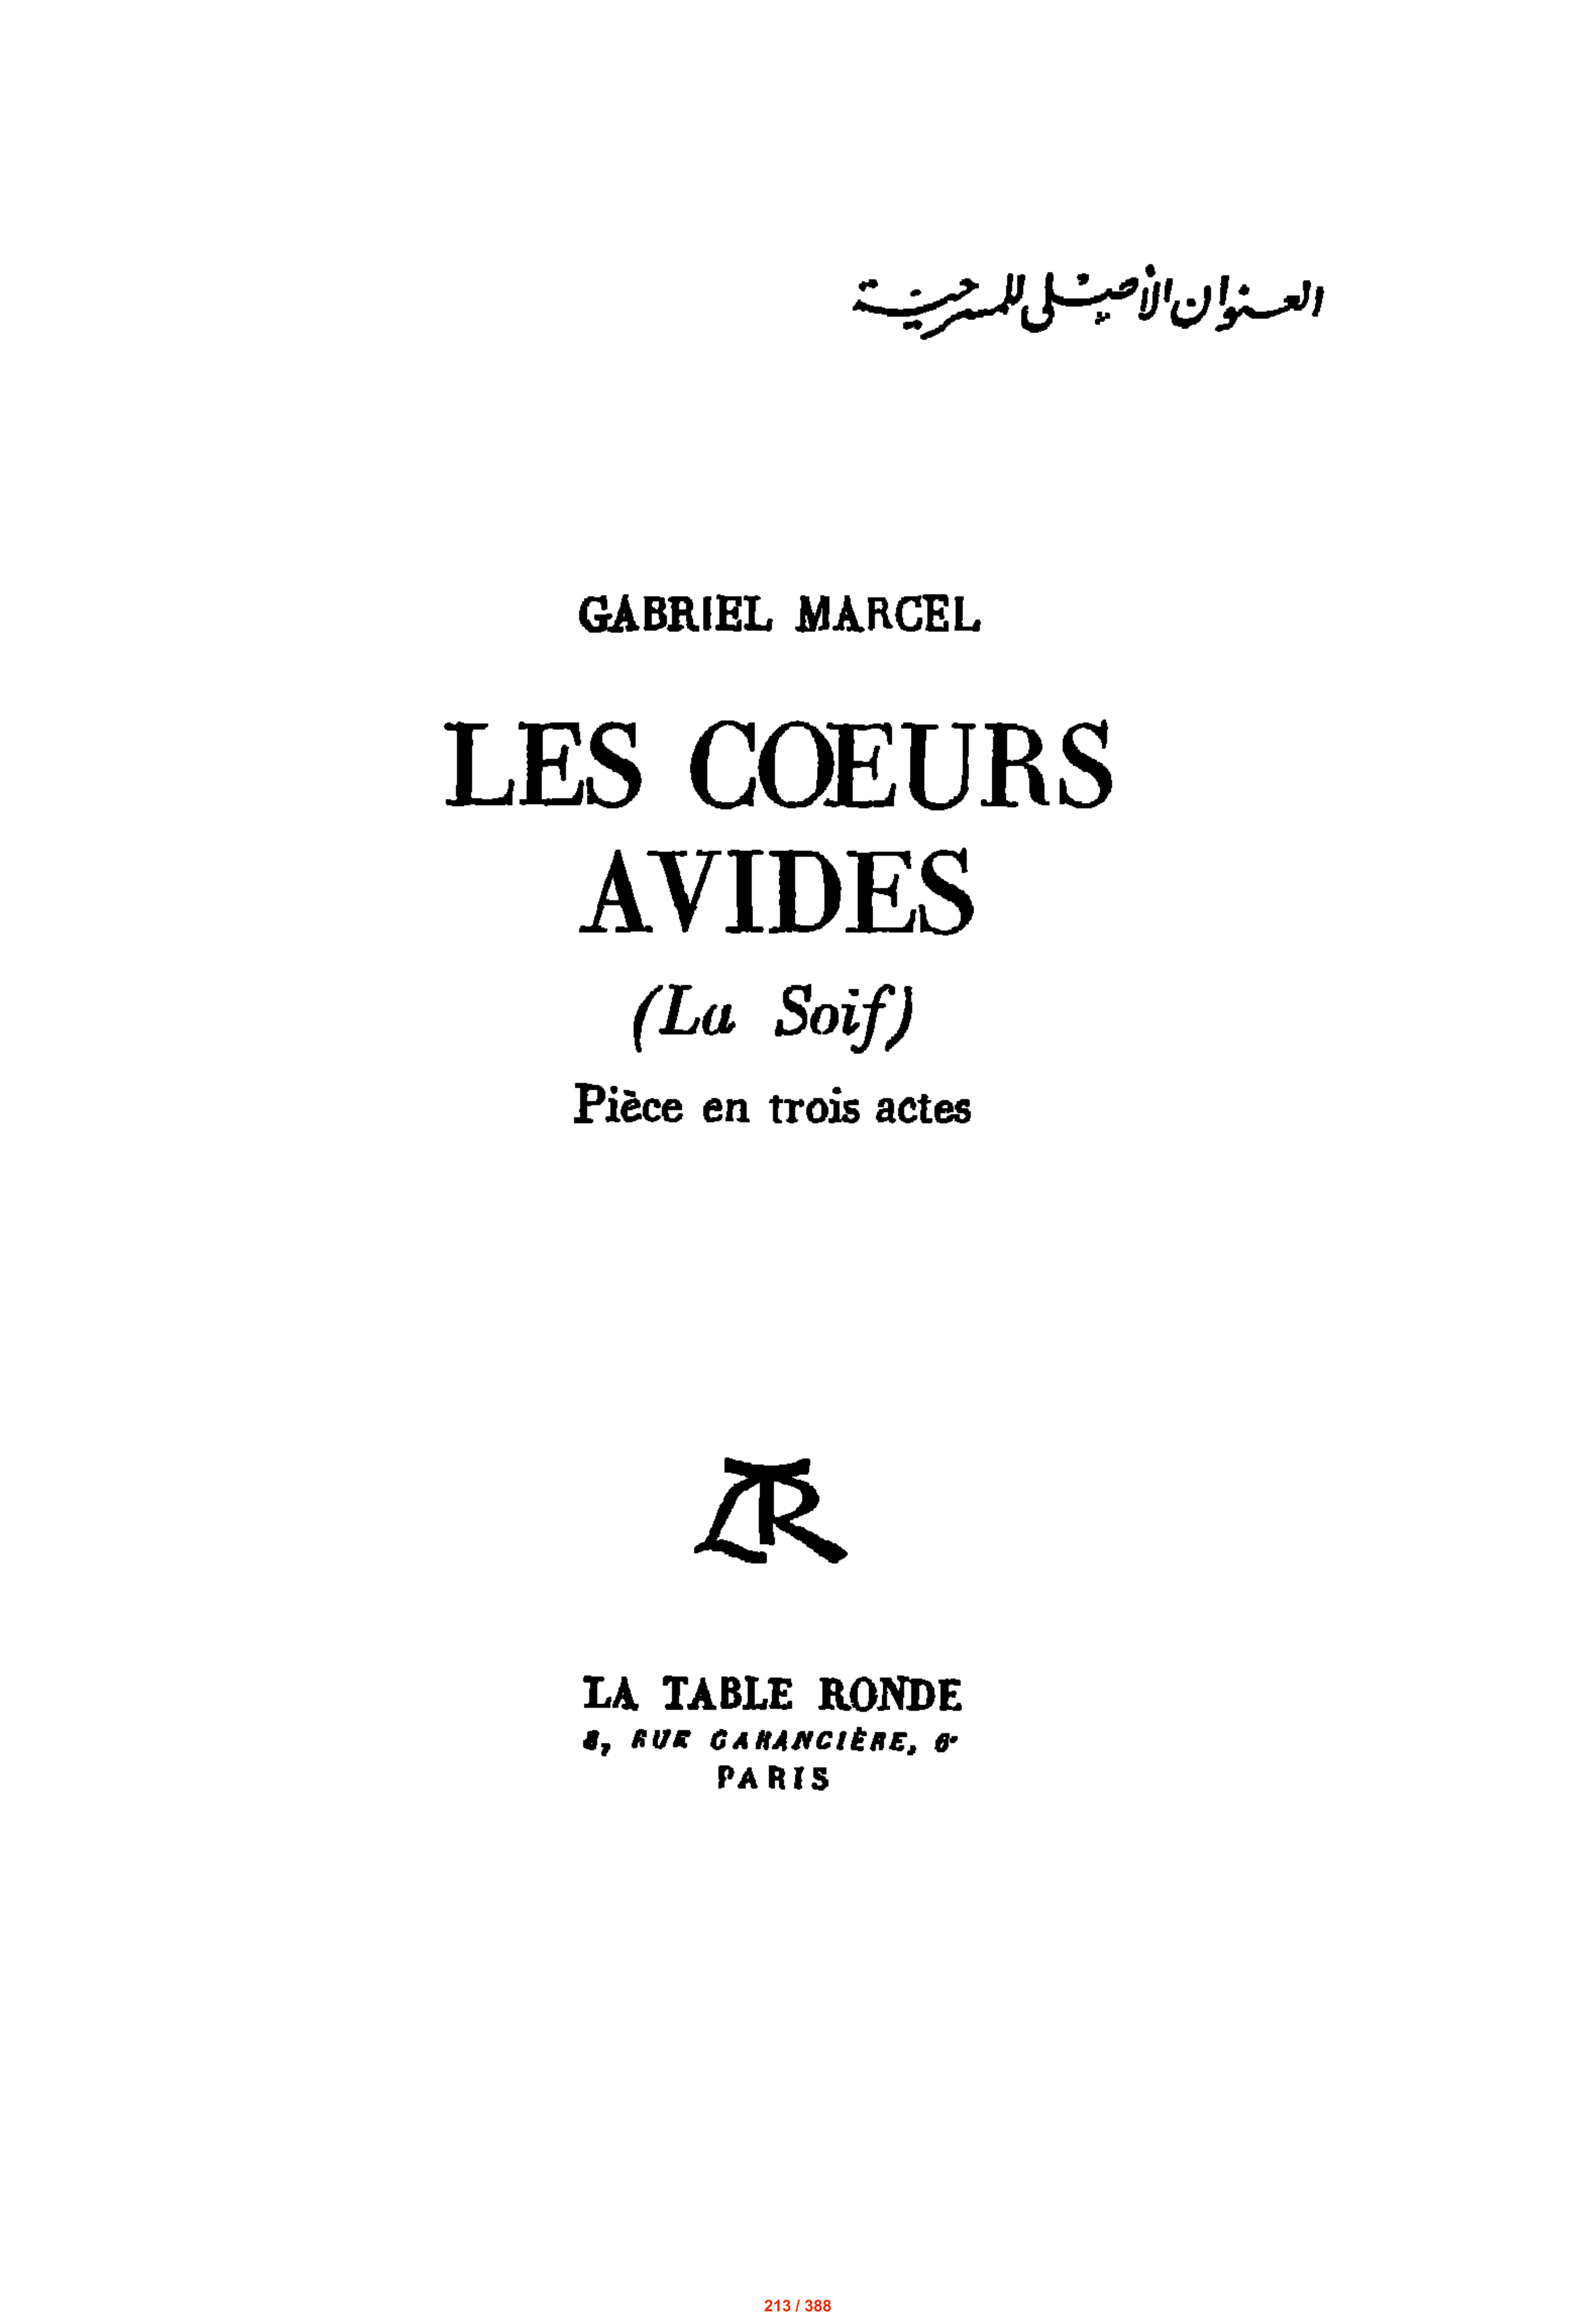 العنوان الأصلى للمسرحية
GABRIEL MARCEL
LES CŒURS
AVIDES
(La Soif)
Pièce en trois actes
LTR
LA TABLE RONDE
8, RUE GARANCIÈRE, 6e
PARIS
213 / 388